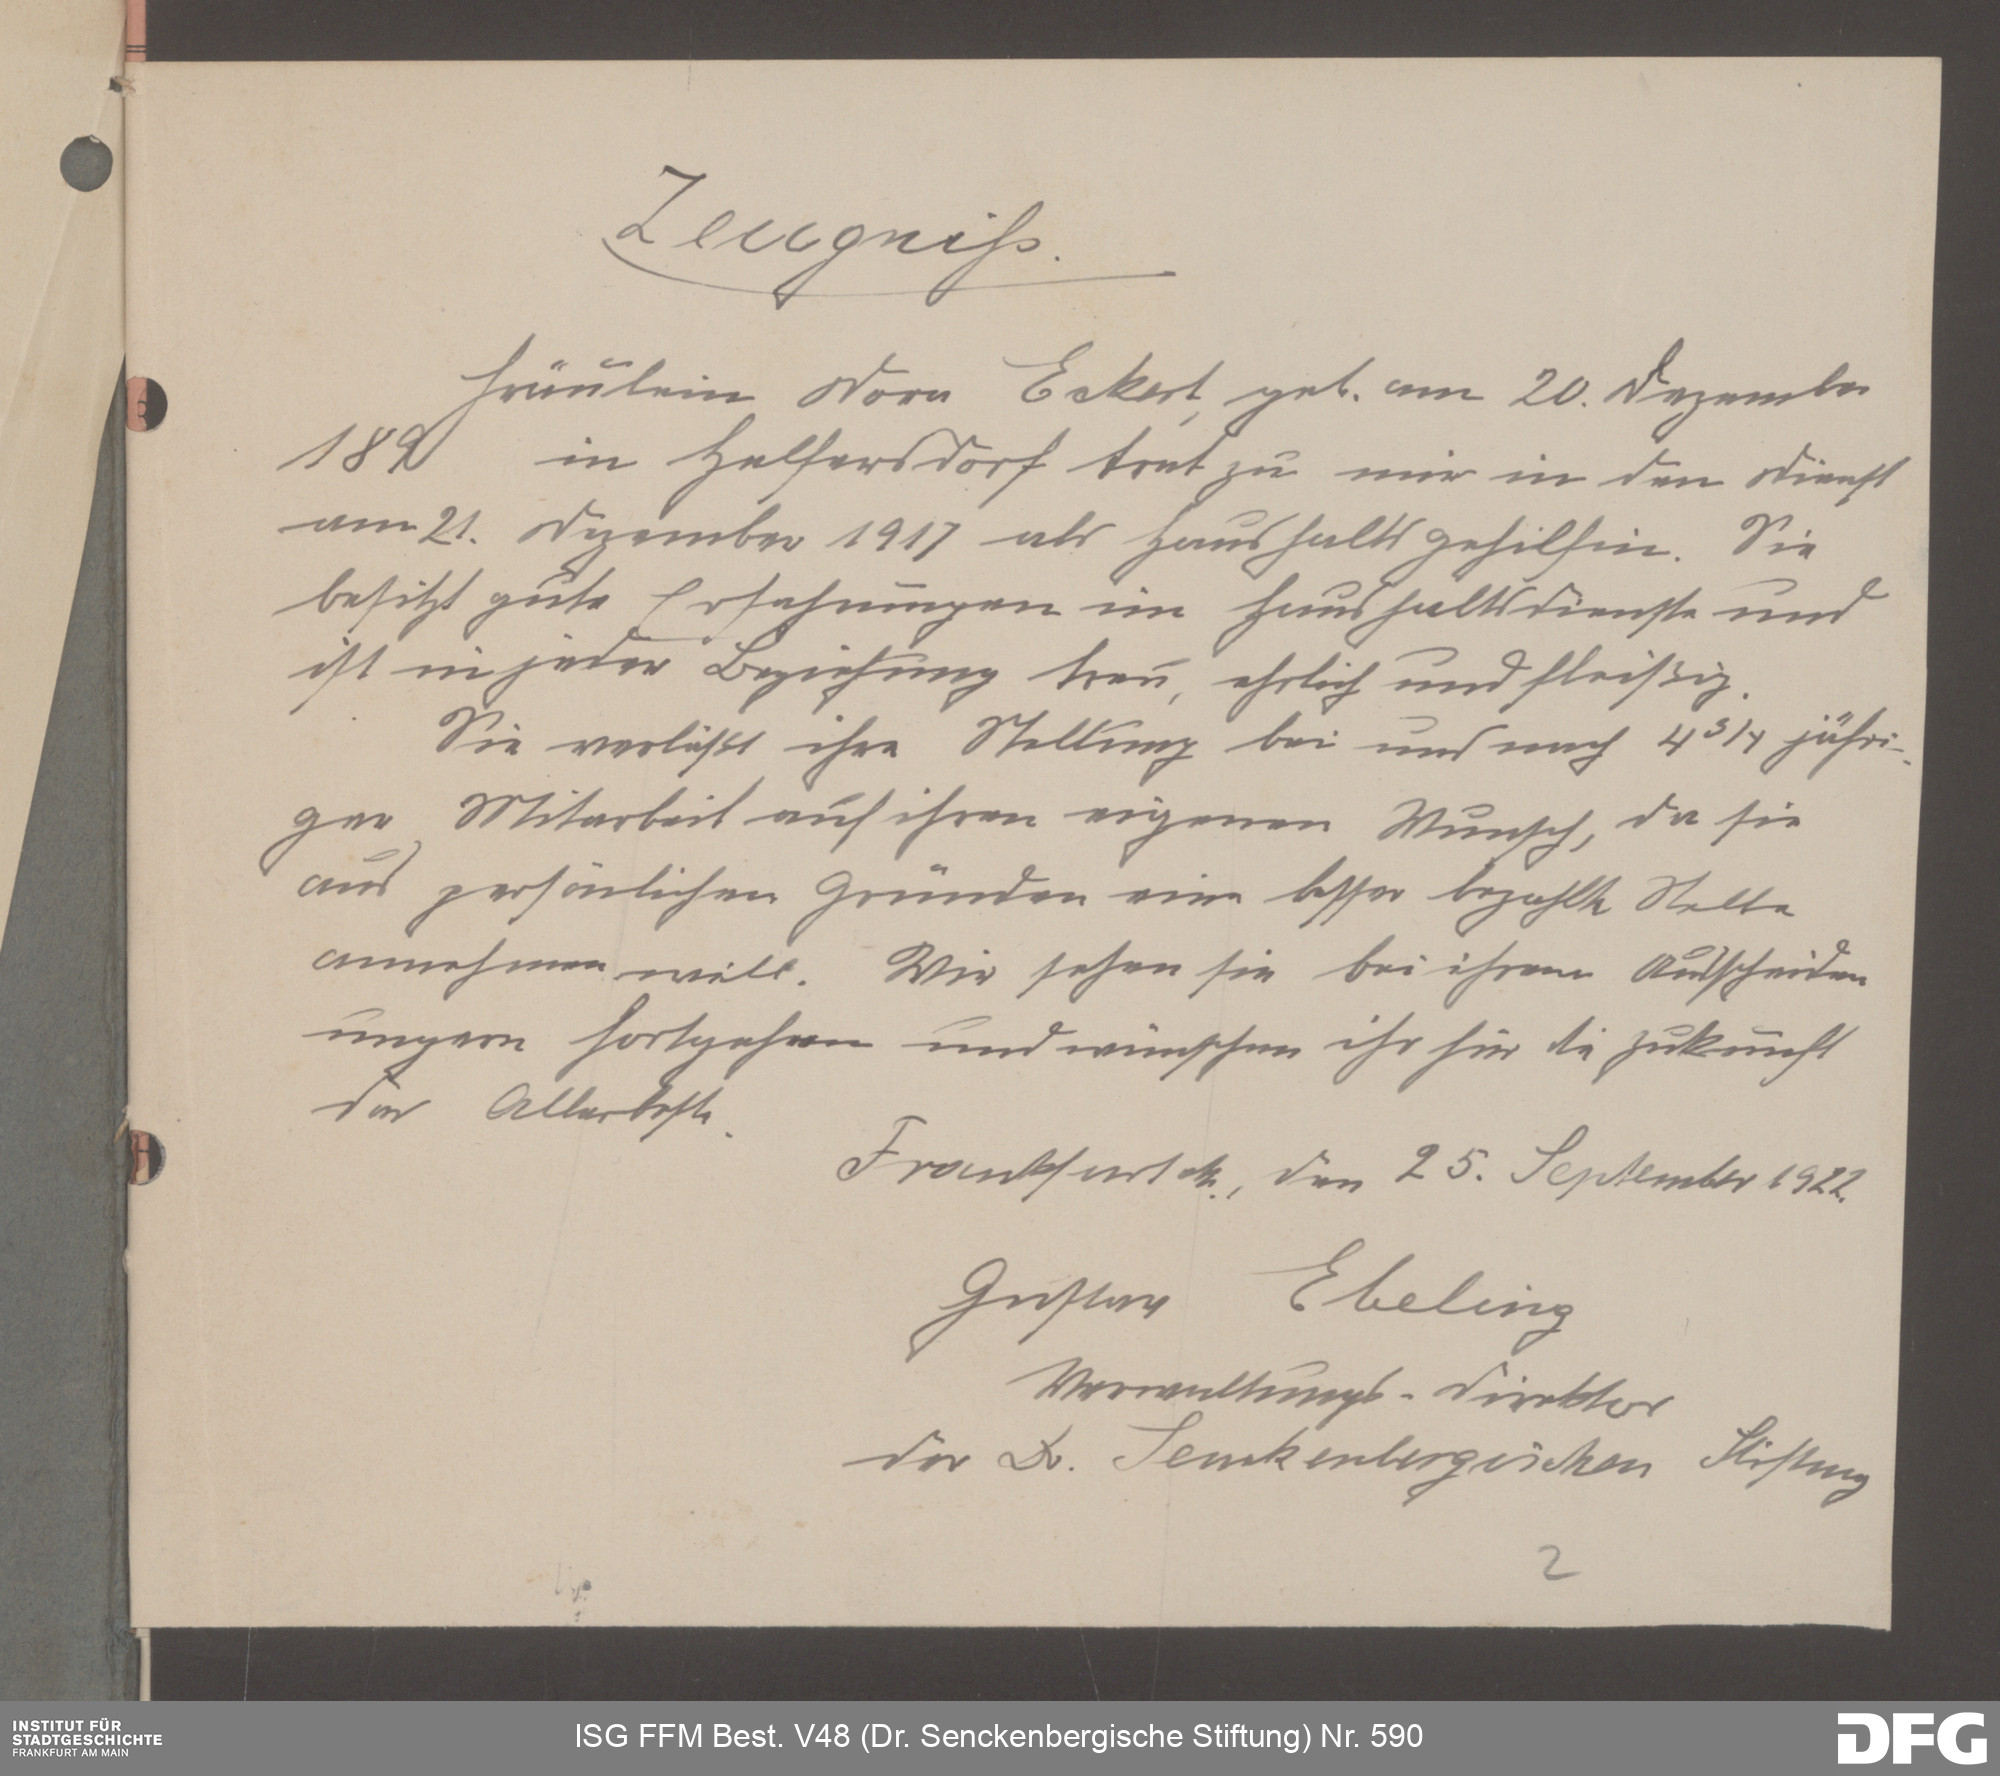 Zeugniß.
Fräulein Dora Eckert, geb. am 20. Dezember
189 in Helfersdorf trat zu mir in den Dienst
am 21. Dezember 1917 als Haushaltsgehilfin. Sie
besitzt gute Erfahrungen im Haushaltsdienste und
ist in jeder Beziehung treu, ehrlich und fleißig.
Sie verläßt ihre Stellung bei uns nach 4 3/4 jähri-
ger Mitarbeit auf ihren eigenen Wunsch, da sie
aus persönlichen Gründen eine besser bezahlte Stelle
annehmen will. Wir sehen sie bei ihrem Ausscheiden
ungern fortgehen und wünschen ihr für die Zukunft
das Allerbeste.
Frankfurt a/M., den 25. September 1922.
Gustav Ebeling
Verwaltungs-Direktor
der Dr. Senckenbergischen Stiftung
2
INSTITUT FÜR
STADTGESCHICHTE
FRANKFURT AM MAIN
ISG FFM Best. V48 (Dr. Senckenbergische Stiftung) Nr. 590
DFG